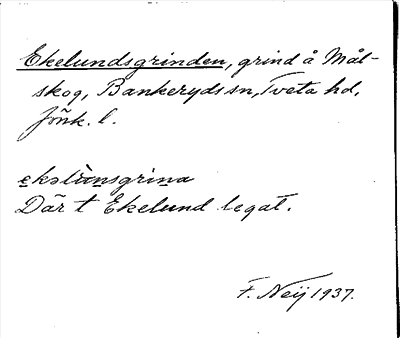 Ekelundsgrinden, grind å Mål-
skog, Bankeryds sn, Tveta hd,
Jönk. l.
Där t Ekelund legat.
F. Neij 1937.